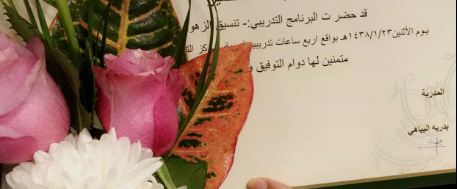 قد حضرت البرنامج التدريبي:- تنسيق الزهو
يوم الأثنين١٤٣٨/١/٢٣هـ بواقع اربع ساعات تدريبية
متمنين لها دوام التوفيق
المدربة
بدريه البياهي